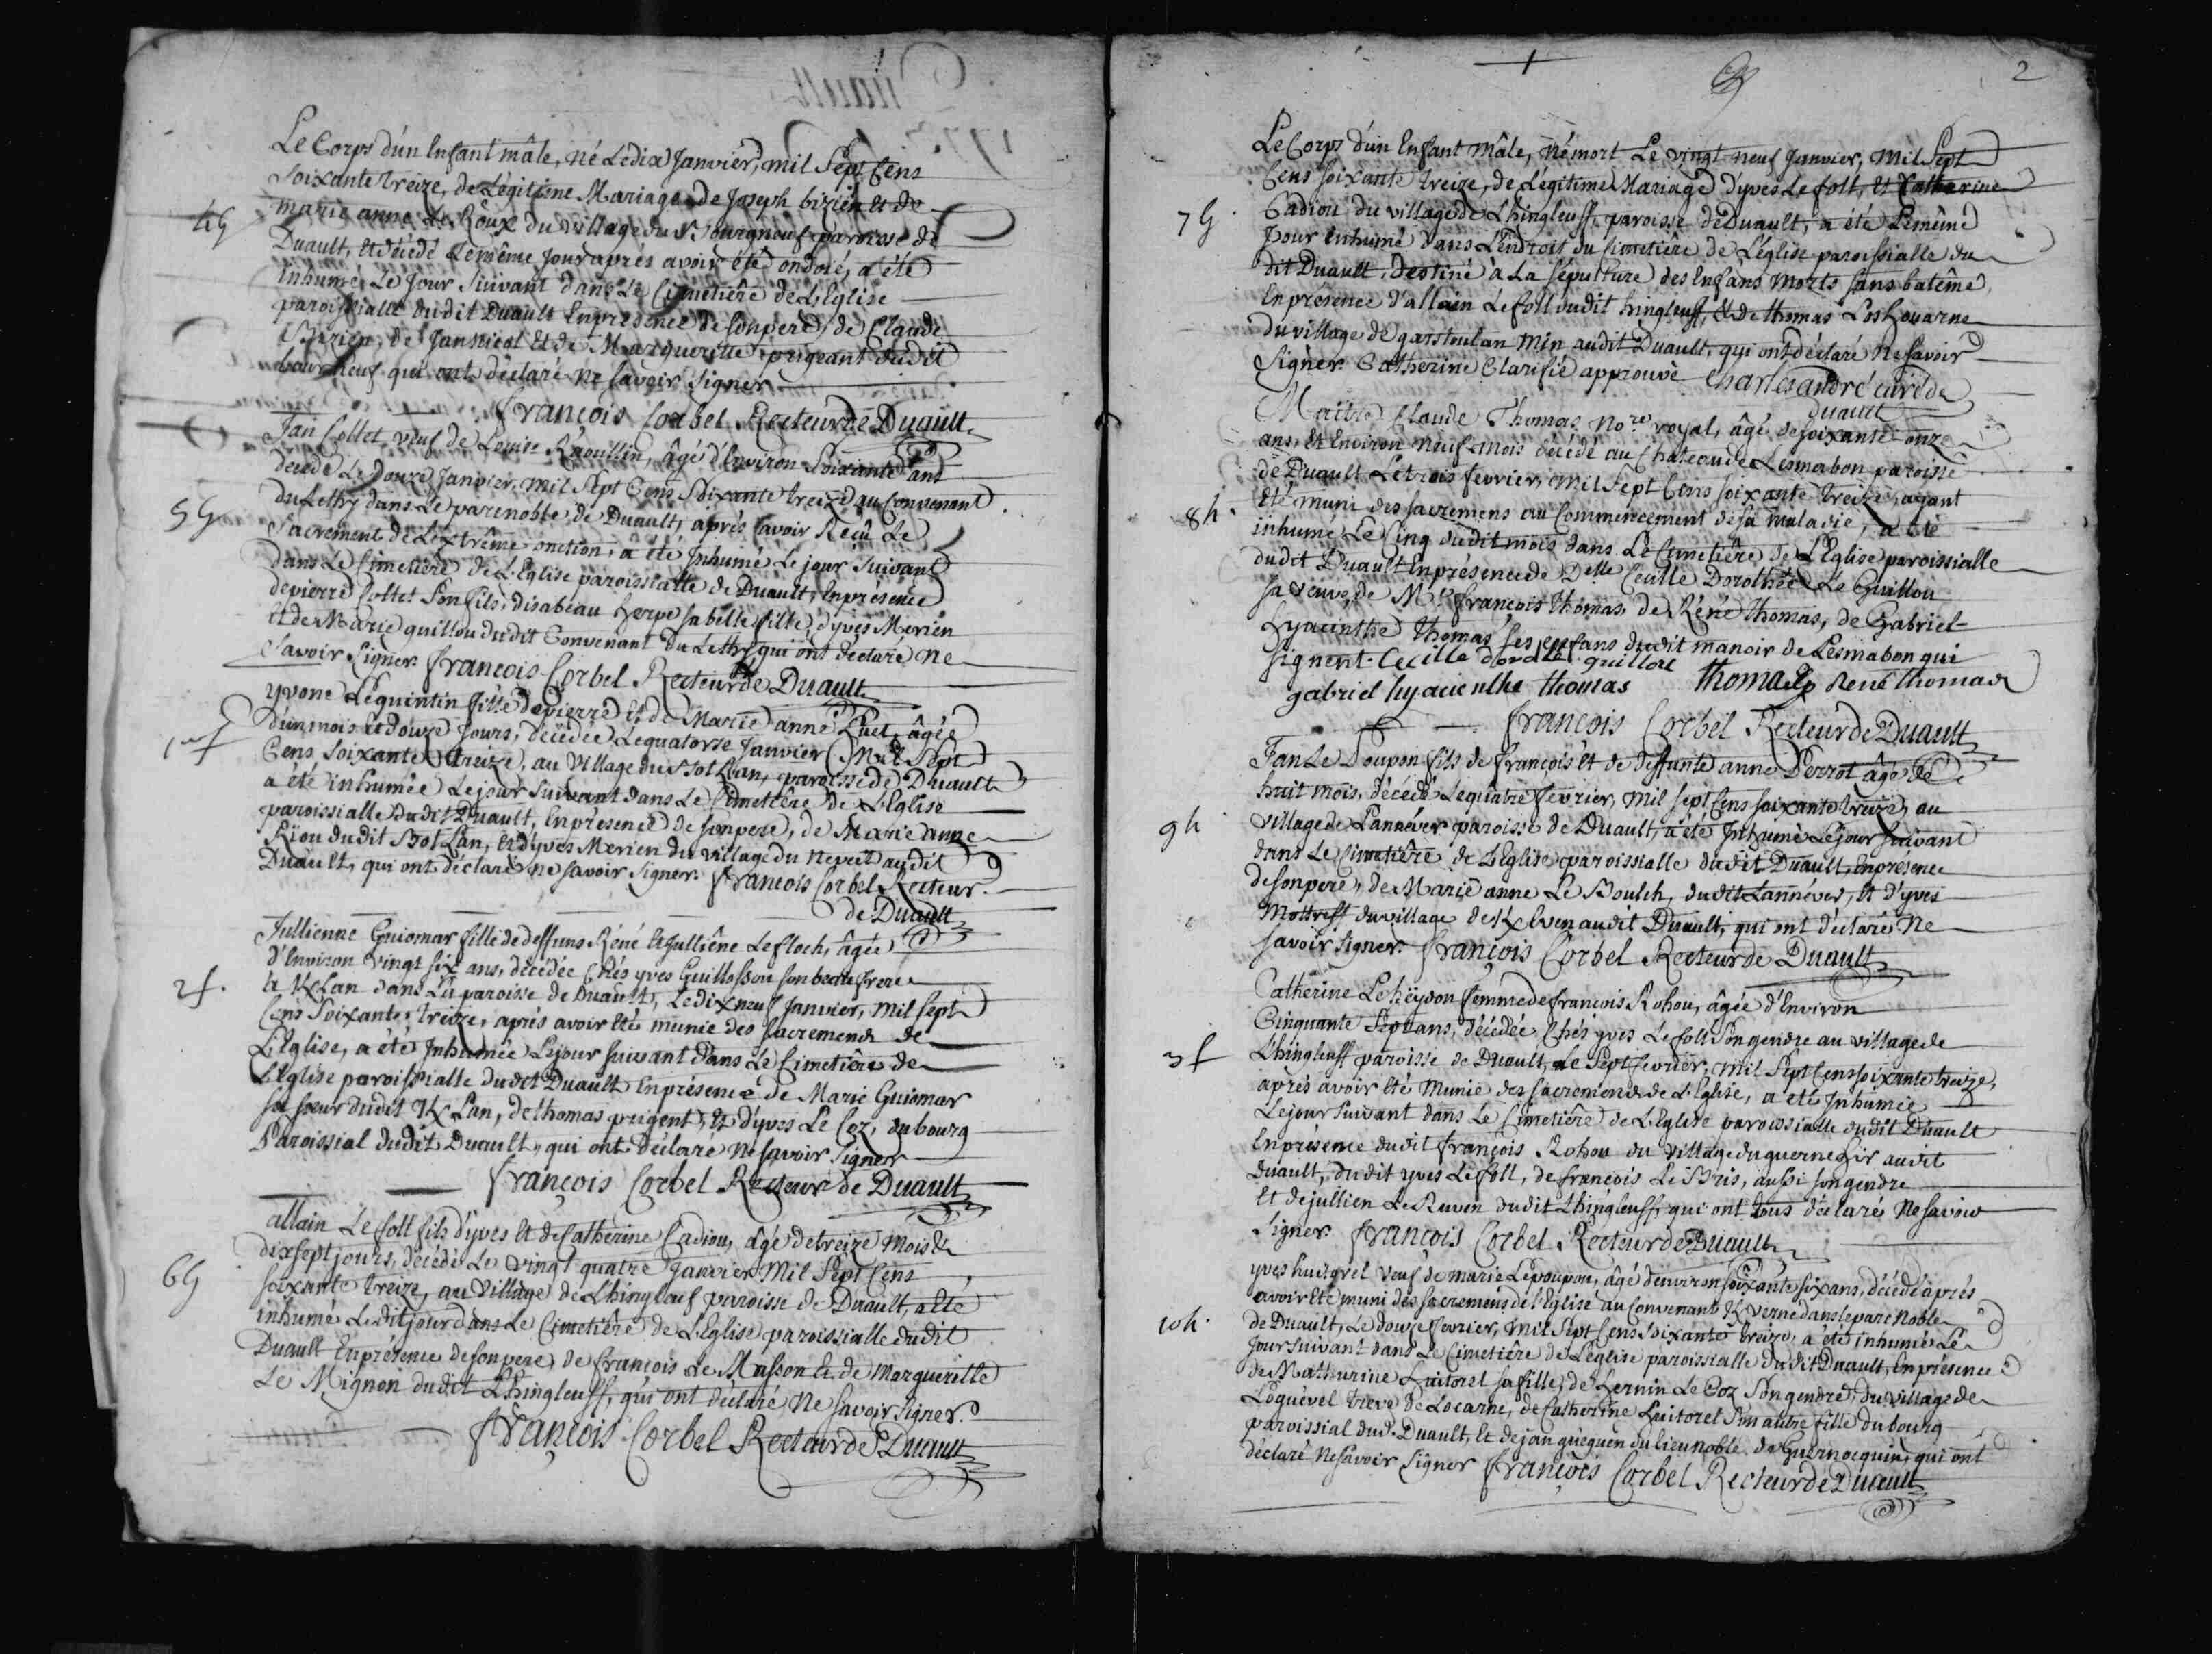 Le Corps d'un Enfant mâle, né Le dix Janvier, mil Sept Cens
Soixante treize, de Légitime Mariage de Joseph bizien et de
4 G
marie anne Le Roux du village du Bourgneuf paroisse de
Duault, et décédé Le même Jour après avoir été ondoié, a été
inhumé Le Jour Suivant dans Le Cimetière de L'Eglise
paroissialle du dit Duault En présence de son père, de Claude
Bizien, de Jannicol et de Margueritte prigeant du dit
bourgneuf qui ont déclaré ne Savoir Signer
françois Corbel Recteur de Duault
Jan Collet veuf de Louise Raoullin, âgé d'Environ Soixante ans
décédé Le Douze Janvier, mil Sept Cens Soixante treize au Convenant
5 G
du Lethy dans Le parc noble de Duault, après avoir Reçû Le
Sacrement de L'extrême onction, a été Inhumé Le jour Suivant
dans Le Cimetière de L'Eglise paroissialle de Duault, En présence
de pierre Collet Son fils, disabeau herve sa belle fille, d'yves Merien
et de Marie quillou du dit Convenant du Lethy qui ont declaré ne
Savoir Signer. françois Corbel Recteur de Duault
yvone Lequintin fille de pierre et de Marie anne Huet, âgée
1 f
d'un mois et douze Jours, décédée Le quatorze Janvier Mil Sept
Cens Soixante treize, au village du Bot Lan, paroisse de Duault
a été inhumée Le jour Suivant dans Le Cimetière de L'Eglise
paroissialle du dit Duault, En présence de son pere, de Marie anne
Riou du dit Bot Lan, et d'yves Merien du village du neveit audit
Duault, qui ont déclaré ne Savoir Signer. françois Corbel Recteur
de Duault
Jullienne Guiomar fille de deffuns Réné et Jullienne Le floch, âgée
d'Environ vingt six ans, décédée Chés yves Guillossou son beau frere
2 f.
à K Lan dans La paroisse de Duault, Le dix neuf Janvier, mil Sept
Cens Soixante treize, après avoir été munie des Sacremens de
L'Eglise, a été Inhumée Le jour suivant dans Le Cimetière de
L'Eglise paroissialle du dit Duault En présence de Marie Guiomar
sa soeur du dit K Lan, de thomas prigent, et d'yves Le Coz, du bourg
Paroissial du dit Duault, qui ont déclaré ne savoir Signer
françois Corbel Recteur de Duault
allain Le foll fils d'yves et de Catherine Cadiou, âgé de treize mois et
dix sept jours, décédé Le vingt quatre Janvier Mil Sept Cens
6 G
soixante treize, au Village de Lhingleuf paroisse de Duault, a été
inhumé Le dit jour dans Le Cimetière de L'Eglise paroissialle du dit
Duault En présence de son pere, de françois Le Masson et de Marguerille
Le Mignon du dit Lhingleuff, qui ont déclaré Ne savoir Signer.
françois Corbel Recteur de Duault
2
Le Corps d'un Enfant mâle, né mort Le vingt neuf Janvier, Mil Sept
Cens soixante treize, de Légitime Mariage d'yves Le foll, et Catherine
7 G.
Cadiou du village de Lhingleuff, paroisse de Duault, a été Le même
Jour inhumé dans L'endroit du Cimetière de L'Eglise paroissialle du
dit Duault, destiné à La sépulture des Enfans Morts sans batême,
En présence d'allain Le foll dudit hingleuff, & de thomas Coshouarne
du village de garstoulan min audit Duault, qui ont déclaré Ne savoir
Signer. Catherine Clarifié approuvé Charles andré curé de
duault
Maître Claude Thomas No.re royal, âgé de soixante onze
ans, et Environ neuf mois décédé au Chateau de Lesmabon paroisse
de Duault Le trois fevrier, mil Sept Cens soixante treize, ayant
8 h.
été muni des sacremens au Commencement de sa maladie, a été
inhumé Le Cinq du dit mois dans Le Cimetière de L'Eglise paroissialle
du dit Duault En présence de Delle Cecille Dorothée Le Guillou
sa veuve, de Mr. françois thomas, de Réné thomas, de Gabriel
hyacinthe thomas ses enfans dudit manoir de Lesmabon qui
signent. Cecille doroté guillou
gabriel hyacienthe thomas thomas René thomas
françois Corbel Recteur de Duault
Jan Le Poupon fils de françois et de deffunte anne Perrot âgé de
huit mois, décédé Le quatre fevrier, mil sept Cens soixante treize, au
9 h
village de Lannéver paroisse de Duault, a été Inhumé Le jour suivant
dans Le Cimetière de L'Eglise paroissialle du dit Duault, En présence
de son pere, de Marie anne Le Boulch, du dit Lannéver, et d'yves
Mottreff du village de K Lven audit Duault, qui ont déclaré Ne
savoir Signer. françois Corbel Recteur de Duault
Catherine Le heydon femme de françois Rohou, âgée d'Environ
Cinquante Sept ans, décédée Chés yves Le foll Son gendre au village de
3 f
Lhingleuff paroisse de Duault, Le Sept fevrier, Mil Sept Cens soixante treize,
après avoir été Munie des Sacremens de L'Eglise, a été Inhumée
Le jour Suivant dans Le Cimetière de L'Eglise paroissialle du dit Duault
En présence du dit françois Rohou du village du guernehir audit
duault, du dit yves Le foll, de françois Le Bris, aussi son gendre
et de jullien Le Ruven du dit Lhingleuff, qui ont tous déclaré Ne savoir
Signer. françois Corbel Recteur de Duault
yves huitorel veuf de marie Le poupon, âgé d'environ soixante six ans, décédé après
avoir été muni des sacremens de l'Eglise au Convenant K verne dans le parc Noble
10 h.
de Duault, Le douze fevrier, Mil Sept Cens Soixante treize, a été inhumé Le
Jour suivant dans Le Cimetière de L'église paroissialle du dit Duault, En présence
de Mathurine Luitorel sa fille, de hernin Le Coz Son gendre, du village de
Loquével treve de Locarne, de Catherine Luitorel Son autre fille du bourg
paroissial dud. Duault, et de jan guéguen du lieu noble de Guernocquin, qui ont
déclaré Ne savoir Signer françois Corbel Recteur de Duault